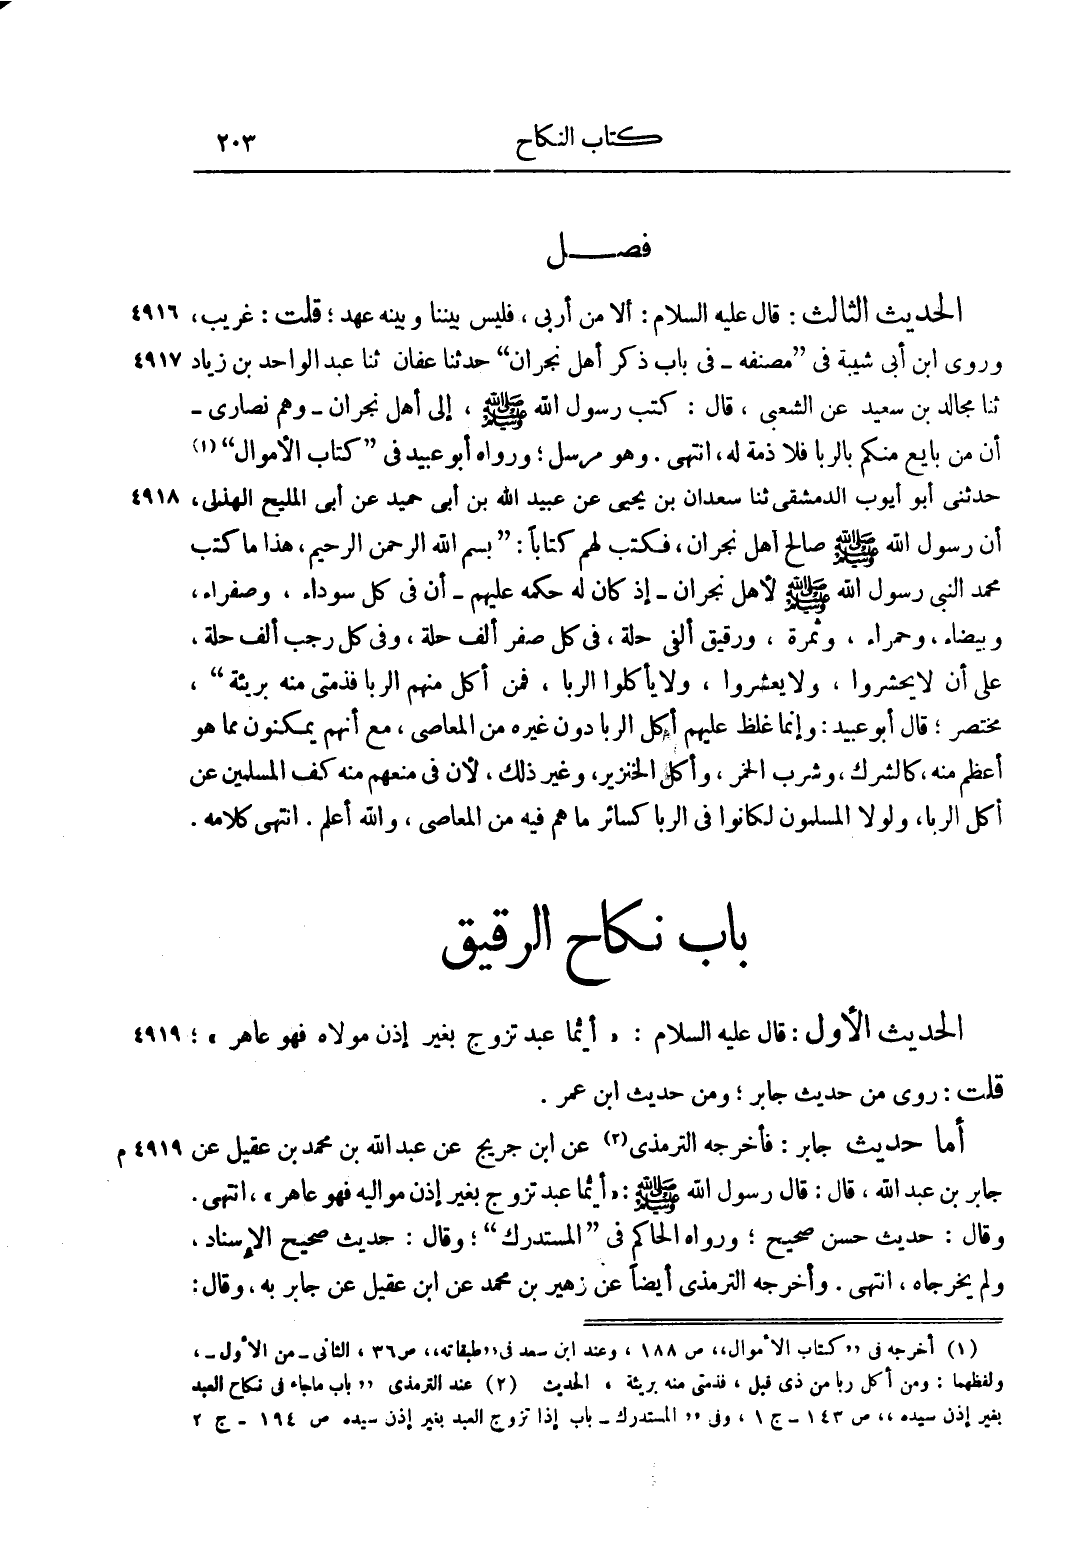 كتاب النكاح ٢٠٣
فصل
الحديث الثالث : قال عليه السلام : ألا من أربى ، فليس بيننا وبينه عهد ؛ قلت : غريب ، ٤٩١٦
وروى ابن أبى شيبة فى "مصنفه ـ فى باب ذكر أهل نجران" حدثنا عفان ثنا عبد الواحد بن زياد ٤٩١٧
ثنا مجالد بن سعيد عن الشعبى ، قال : كتب رسول الله ﷺ ، إلى أهل نجران ـ وهم نصارى ـ
أن من بايع منكم بالربا فلا ذمة له ، انتهى . وهو مرسل ؛ ورواه أبو عبيد فى "كتاب الأموال" (١)
حدثنى أبو أيوب الدمشقى ثنا سعدان بن يحيى عن عبيد الله بن أبى حميد عن أبى المليح الهذلى ، ٤٩١٨
أن رسول الله ﷺ صالح أهل نجران ، فكتب لهم كتاباً : "بسم الله الرحمن الرحيم ، هذا ما كتب
محمد النبى رسول الله ﷺ لأهل نجران ـ إذ كان له حكمه عليهم ـ أن فى كل سوداء ، وصفراء ،
وبيضاء ، وحمراء ، وثمرة ، ورقيق ألفى حلة ، فى كل صفر ألف حلة ، وفى كل رجب ألف حلة ،
على أن لايحشروا ، ولايعشروا ، ولايأكلوا الربا ، فمن أكل منهم الربا فذمتى منه بريئة" ،
مختصر ؛ قال أبو عبيد : وإنما غلظ عليهم أكل الربا دون غيره من المعاصى ، مع أنهم يمكنون مما هو
أعظم منه ، كالشرك ، وشرب الخمر ، وأكل الخنزير ، وغير ذلك ، لأن فى منعهم منه كف المسلمين عن
أكل الربا ، ولولا المسلمون لكانوا فى الربا كسائر ما هم فيه من المعاصى ، والله أعلم . انتهى كلامه .
باب نكاح الرقيق
الحديث الأول : قال عليه السلام : « أيُّما عبد تزوج بغير إذن مولاه فهو عاهر » ؛ ٤٩١٩
قلت : روى من حديث جابر ؛ ومن حديث ابن عمر .
أما حديث جابر : فأخرجه الترمذى (٢) عن ابن جريج عن عبد الله بن محمد بن عقيل عن ٤٩١٩ م
جابر بن عبد الله ، قال : قال رسول الله ﷺ : « أيُّما عبد تزوج بغير إذن مواليه فهو عاهر » ، انتهى .
وقال : حديث حسن صحيح ؛ ورواه الحاكم فى "المستدرك" ؛ وقال : حديث صحيح الإسناد ،
ولم يخرجاه ، انتهى . وأخرجه الترمذى أيضاً عن زهير بن محمد عن ابن عقيل عن جابر به ، وقال :
(١) أخرجه فى ,, كتاب الأموال ،، ص ١٨٨ ، وعند ابن سعد فى ,, طبقاته ،، ص ٣٦ ، الثانى ـ من الأول ـ ،
ولفظهما : ومن أكل ربا من ذى قبل ، فذمتى منه بريئة ، الحديث (٢) عند الترمذى ,, باب ماجاء فى نكاح العبد
بغير إذن سيده ،، ص ١٤٣ ـ ج ١ ، وفى ,, المستدرك ـ باب إذا تزوج العبد بغير إذن سيده ص ١٩٤ ـ ج ٢